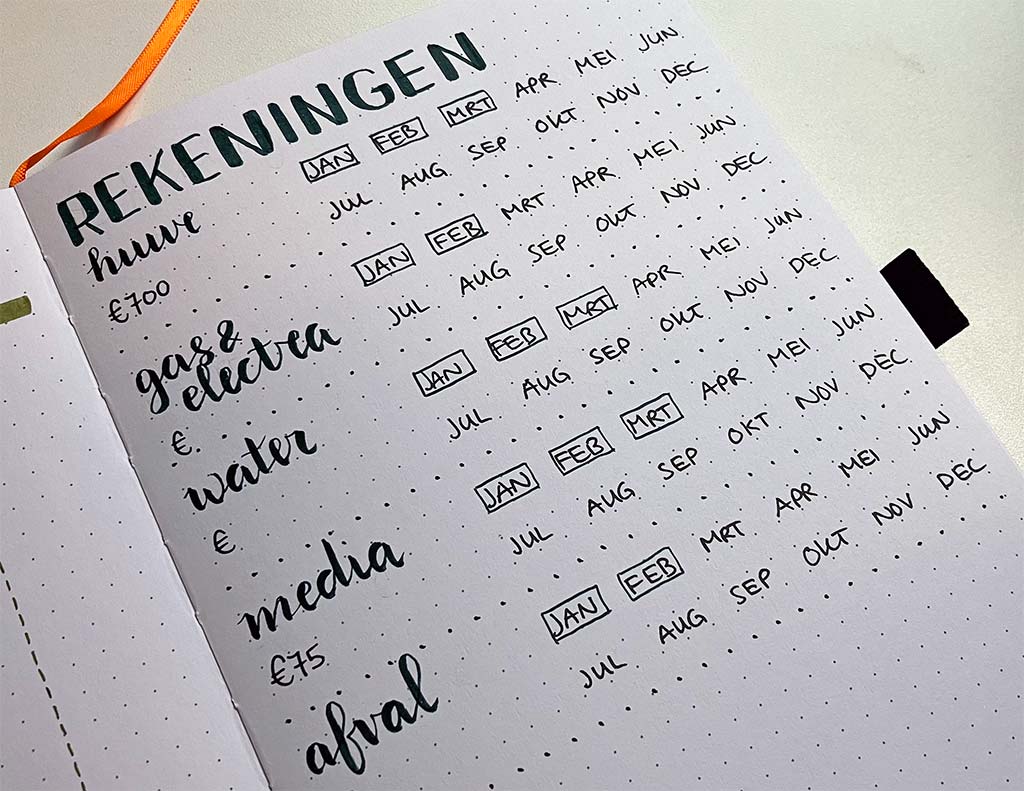 REKENINGEN
huur JAN FEB MRT APR MEI JUN
€700 JUL AUG SEP OKT NOV DEC
gas &
electra JAN FEB MRT APR MEI JUN
€ JUL AUG SEP OKT NOV DEC
water JAN FEB MRT APR MEI JUN
€ JUL AUG SEP OKT NOV DEC
media JAN FEB MRT APR MEI JUN
€75 JUL AUG SEP OKT NOV DEC
afval JAN FEB MRT APR MEI JUN
JUL AUG SEP OKT NOV DEC